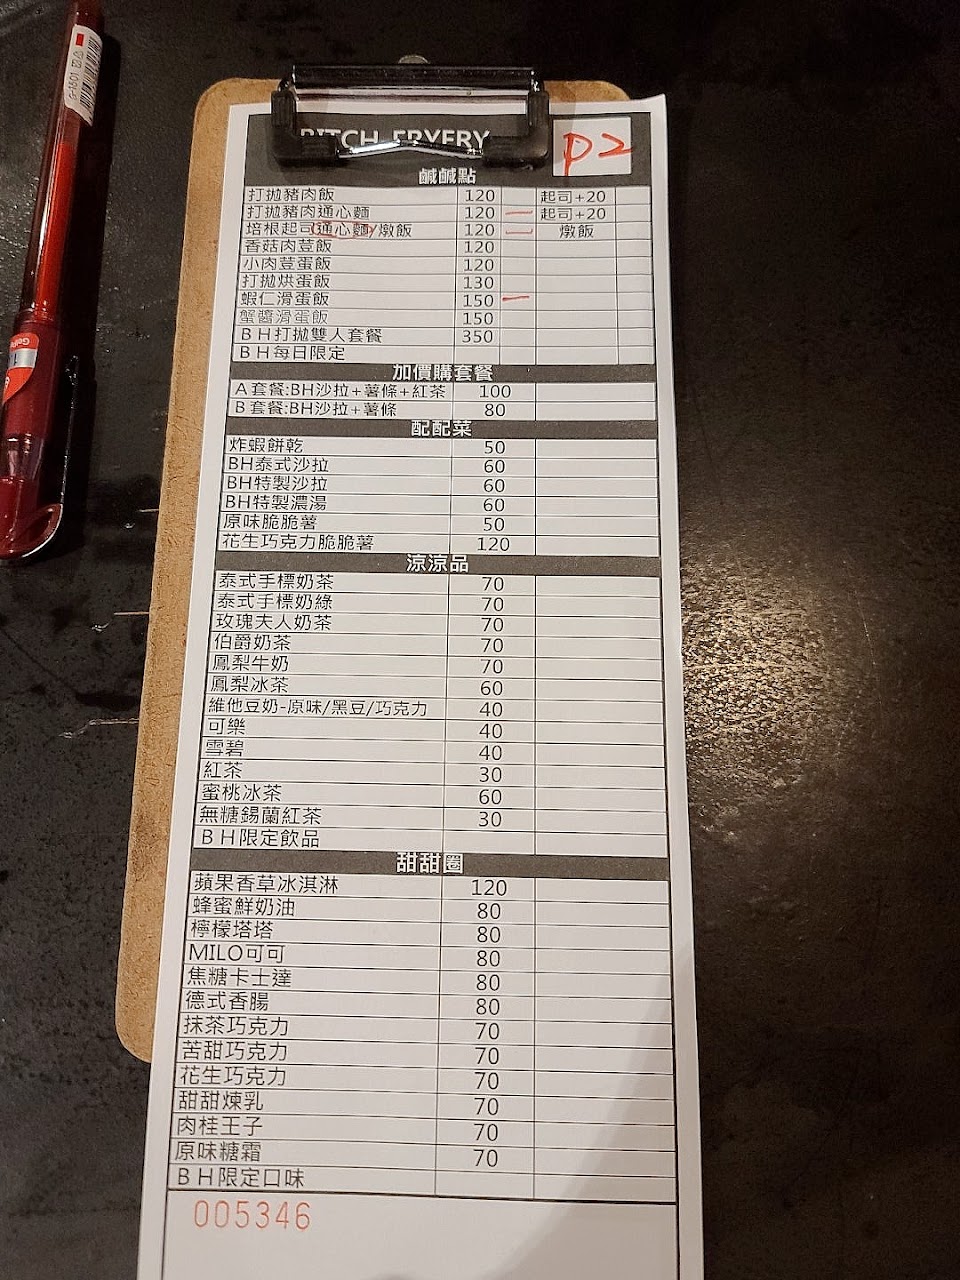 BITCH FRYERY P2
鹹鹹點
打拋豬肉飯 120 起司+20
打拋豬肉通心麵 120 起司+20
培根起司通心麵/燉飯 120 燉飯
香菇肉荳飯 120
小肉荳蛋飯 120
打拋烘蛋飯 130
蝦仁滑蛋飯 150
蟹醬滑蛋飯 150
BH打拋雙人套餐 350
BH每日限定
加價購套餐
A套餐:BH沙拉+薯條+紅茶 100
B套餐:BH沙拉+薯條 80
配配菜
炸蝦餅乾 50
BH泰式沙拉 60
BH特製沙拉 60
BH特製濃湯 60
原味脆脆薯 50
花生巧克力脆脆薯 120
涼涼品
泰式手標奶茶 70
泰式手標奶綠 70
玫瑰夫人奶茶 70
伯爵奶茶 70
鳳梨牛奶 70
鳳梨冰茶 60
維他豆奶-原味/黑豆/巧克力 40
可樂 40
雪碧 40
紅茶 30
蜜桃冰茶 60
無糖錫蘭紅茶 30
BH限定飲品
甜甜圈
蘋果香草冰淇淋 120
蜂蜜鮮奶油 80
檸檬塔塔 80
MILO可可 80
焦糖卡士達 80
德式香腸 80
抹茶巧克力 70
苦甜巧克力 70
花生巧克力 70
甜甜煉乳 70
肉桂王子 70
原味糖霜 70
BH限定口味
005346